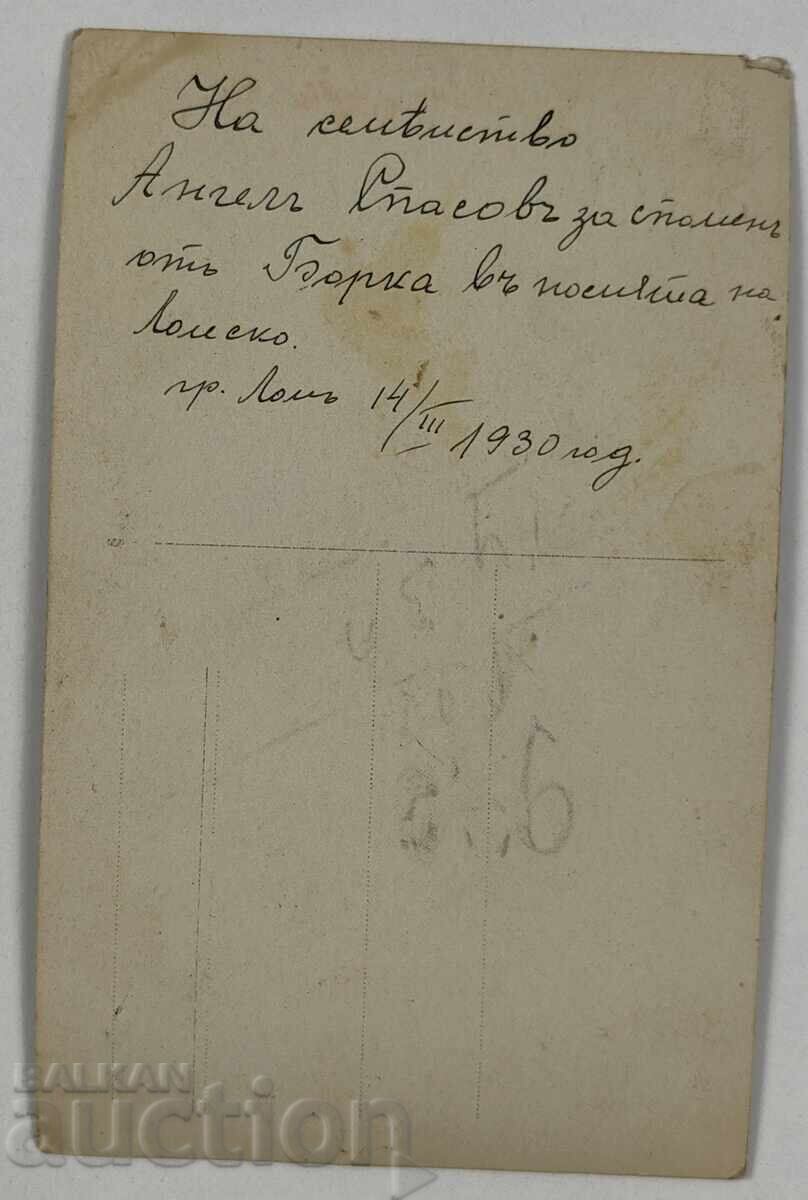 На семѣйство
Ангелъ Спасовъ за споменъ
отъ Борка въ носията на
Ломско.
гр. Ломъ 14/III 1930 год.
BALKAN
auction